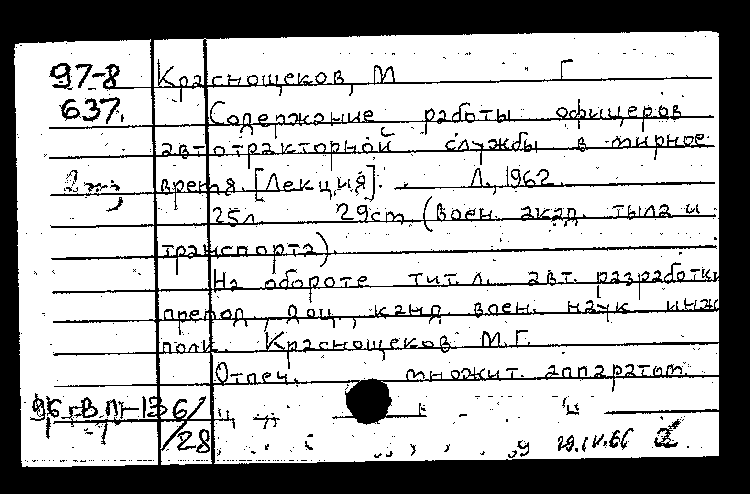 97-8 Краснощеков, М Г
637. Содержание работы офицеров
автотракторной службы в мирное
2 экз время. [Лекция]. Л., 1962.
25л. 29см. (Воен. акад. тыла и
транспорта).
На обороте тит. л. авт. разработки
препод., доц., канд. воен. наук инж
полк. Краснощеков М.Г.
Отпеч. множит. аппаратом.
136/
28 29.IV.66